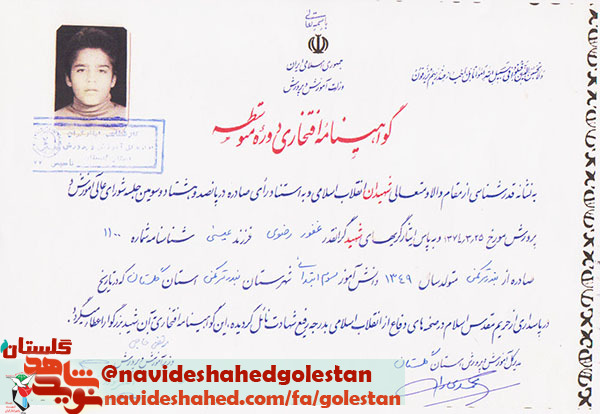 باسمه تعالی
جمهوری اسلامی ایران
وزارت آموزش و پرورش
گواهینامه افتخاری دوره متوسطه
به نشانه قدرشناسی از مقام والا و متعالی شهیدان انقلاب اسلامی و به استناد رای صادره در پانصد و هشتاد و سومین جلسه شورای عالی آموزش و
پرورش مورخ ۱۳۷۴/۳/۲۵ و به پاس ایثارگریهای شهید گرانقدر غفور رضوی فرزند عیسی شناسنامه شماره ۱۱۰۰
صادره از بندر ترکمن متولد سال ۱۳۴۹ دانش آموز سوم ابتدائی شهرستان بندر ترکمن استان گلستان که در تاریخ
در پاسداری از حریم مقدس اسلام در صحنه های دفاع از انقلاب اسلامی به درجه رفیع شهادت نائل گردیده، این گواهینامه افتخاری آن شهید بزرگوار اعطاء میگردد.
مدیرکل آموزش و پرورش استان گلستان
نوید شاهد گلستان
@navideshahedgolestan
navideshahed.com/fa/golestan